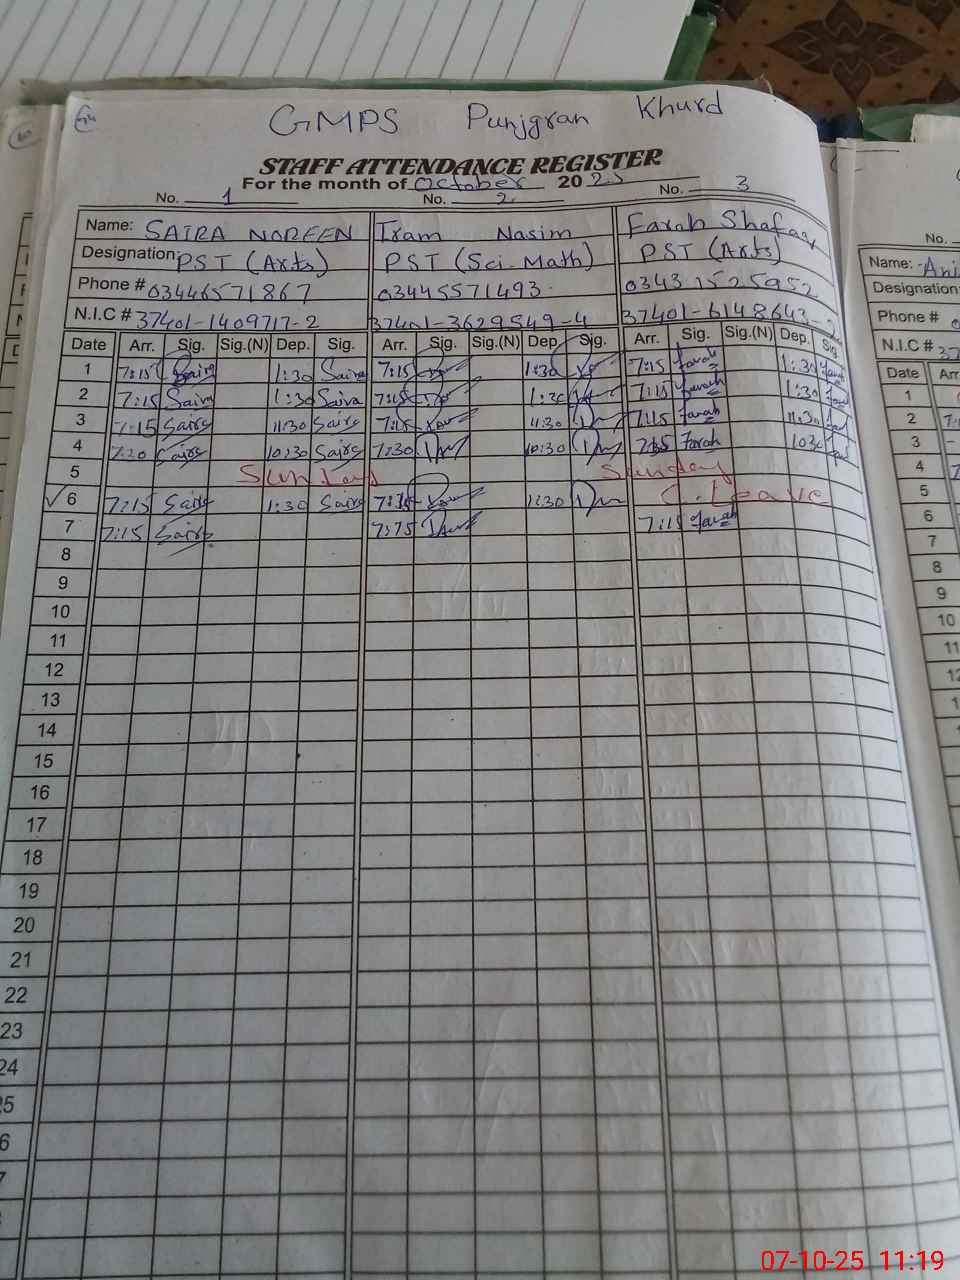 GMPS Punjgran Khurd
STAFF ATTENDANCE REGISTER
For the month of October 2025
No. 1 No. 2 No. 3
Name: SAIRA NOREEN Iram Nasim Farah Shafaq
Designation: PST (Arts) PST (Sci-Math) PST (Arts)
Phone # 03446571867 03445571493 0343 1525952
N.I.C # 37401-1409717-2 37401-3629549-4 37401-6148643-
Date Arr. Sig. Sig.(N) Dep. Sig. Arr. Sig. Sig.(N) Dep. Sig. Arr. Sig. Sig.(N) Dep. Sig.
1 7:15 Saira 1:30 Saira 7:15 1:30 7:15 Farah 1:30 Farah
2 7:15 Saira 1:30 Saira 7:15 1:30 7:15 Farah 1:30
3 7:15 Saira 11:30 Saira 7:15 11:30 7:15 Farah 11:30
4 7:30 Saira 10:30 Saira 7:30 10:30 Farah 10:30
5 Sunday Sunday
6 7:15 Saira 1:30 Saira 7:15 1:30 C. Leave
7 7:15 Saira 7:15 7:15 Farah
8
9
10
11
12
13
14
15
16
17
18
19
20
21
22
23
24
25
6
7
No.
Name: Ani
Designation:
Phone # 0
N.I.C # 37
Date Arr
1
2
3
4
5
6
7
8
9
10
11
12
07-10-25 11:19